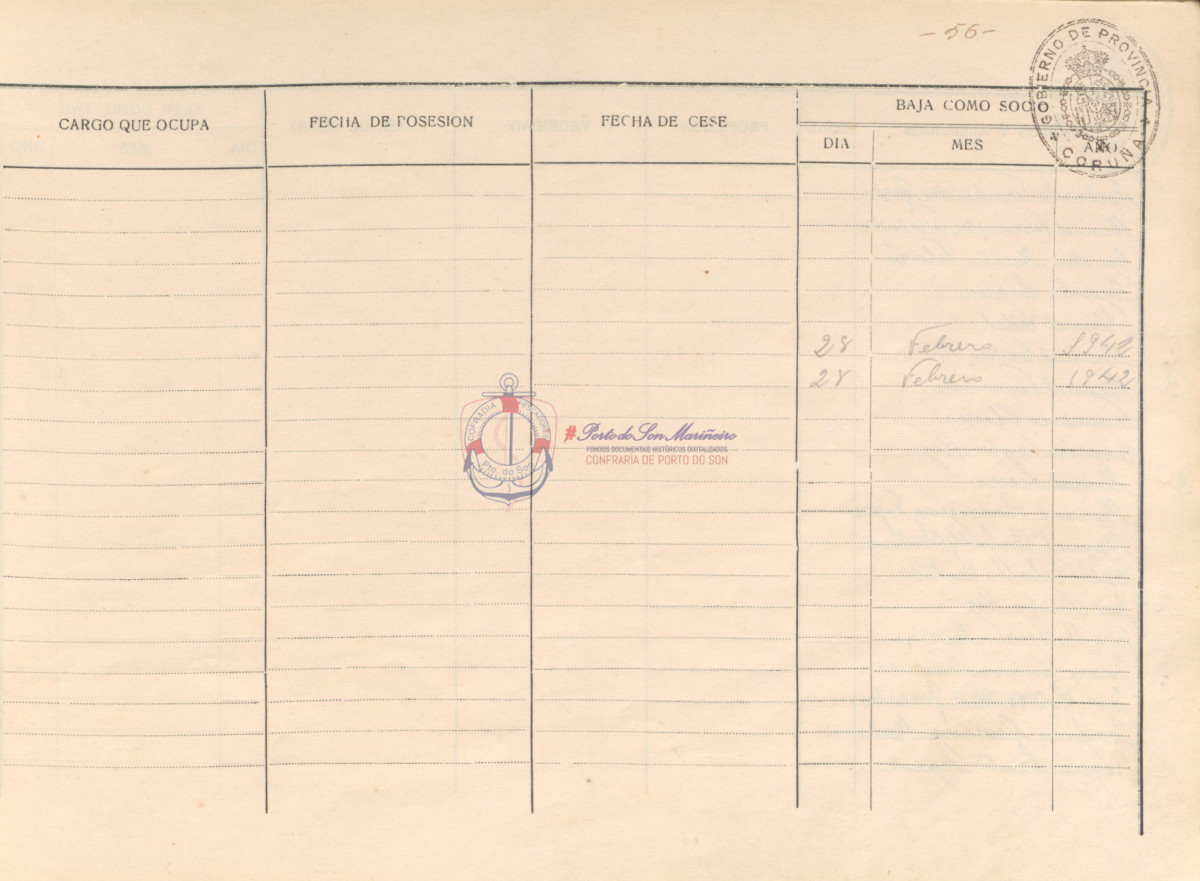 - 56 -
GOBIERNO DE PROVINCIA
CORUÑA
CARGO QUE OCUPA
FECHA DE POSESION
FECHA DE CESE
BAJA COMO SOCIO
DIA
MES
AÑO
28 Febrero 1942
28 Febrero 1942
COFRADIA PESCADORES
Pto. do Son
#Porto do Son Mariñeiro
FONDOS DOCUMENTAIS HISTÓRICOS DIGITALIZADOS
CONFRARÍA DE PORTO DO SON